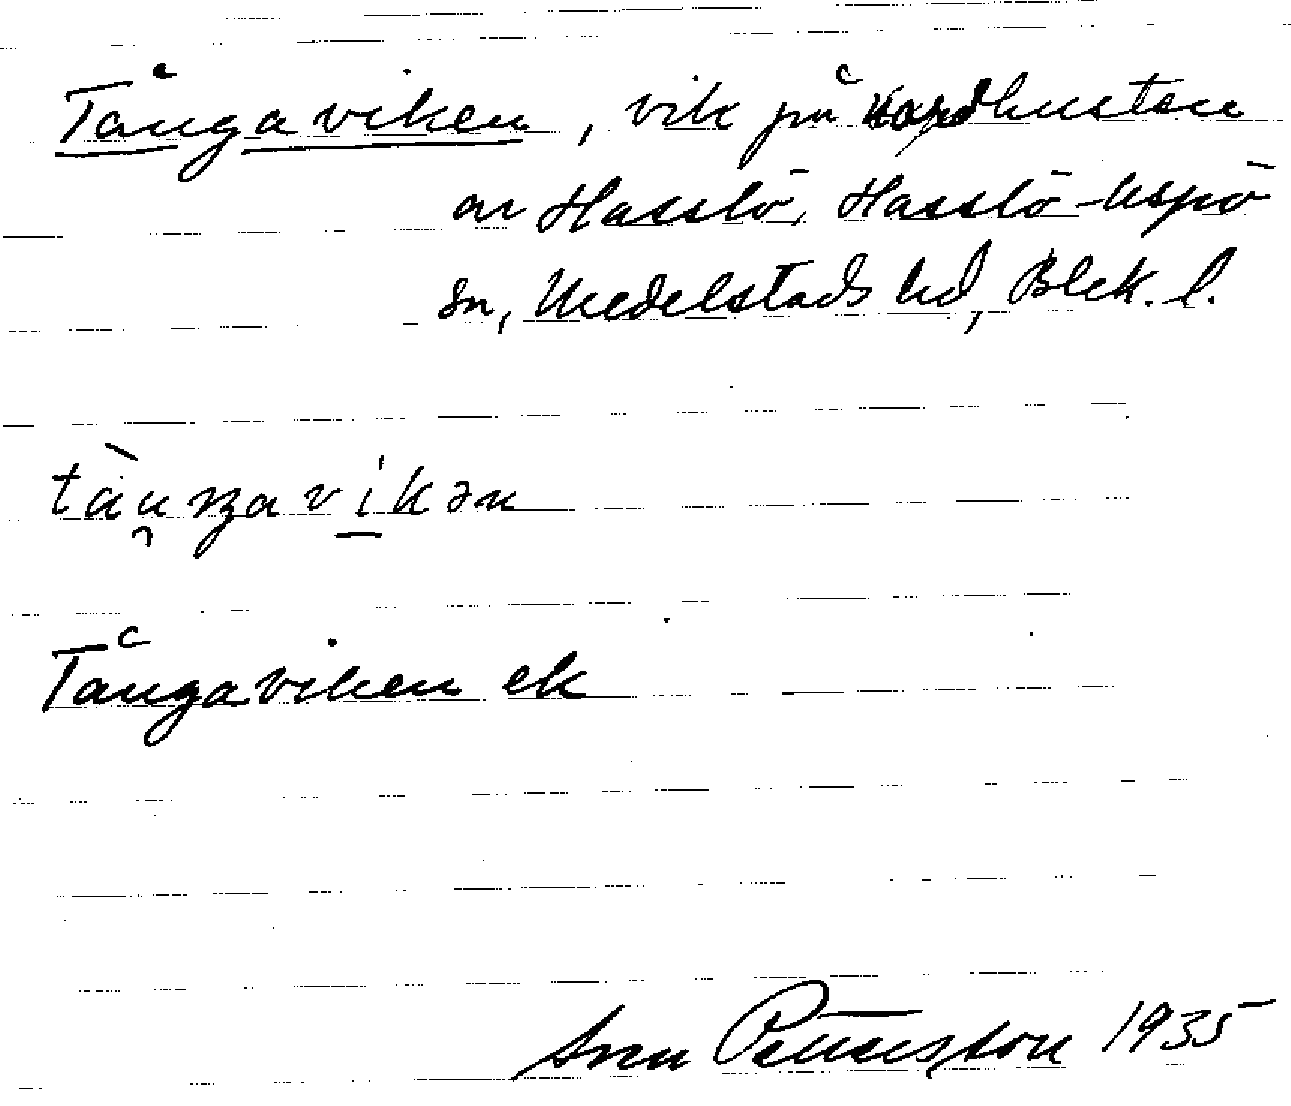 Tångaviken, vik på Nordkusten
av Hasslö, Hasslö-Aspö
sn, Medelstads hd, Blek. l.
Tångaviken ek
1935